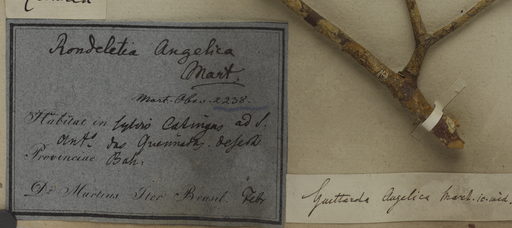 Rondeletia Angelica
Mart.
Mart. Obs. 2238.
Habitat in sylvis Catingas ad S.
Ant. das Queimadas. deserti
Provinciae Bah.
Dr Martius Iter Brasil. Febr
Guettarda Angelica Mart.